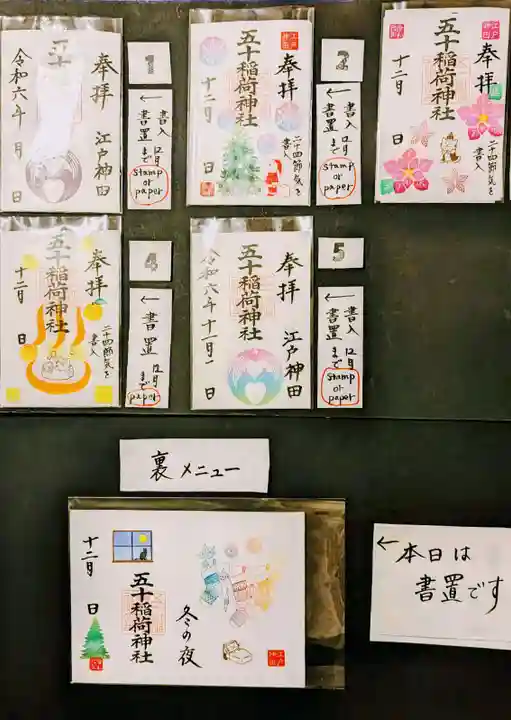 奉拝
江戸神田
五十
令和六年 月 日
1
← 書入
書置 12月まで
stamp
or
paper
奉拝
二十四節気を
書入
五十稲荷神社
十二月 日
江戸
神田
2
← 書入
書置 12月まで
stamp
or
paper
奉拝
二十四節気を
書入
五十稲荷神社
十二月 日
江戸
神田
奉拝
二十四節気を
書入
五十稲荷神社
十二月 日
4
← 書置
12月まで
paper
奉拝
江戸神田
五十稲荷神社
令和六年十二月一日
5
← 書入
書置 12月まで
stamp
or
paper
裏メニュー
冬の夜
五十稲荷神社
十二月 日
江戸
神田
← 本日は
書置です